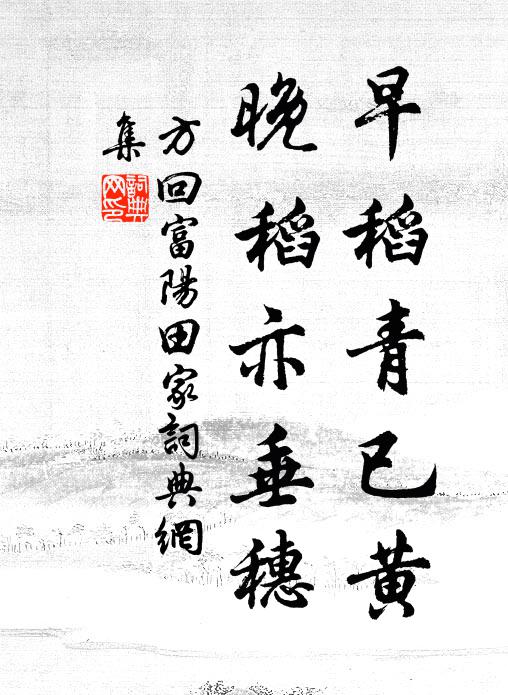 早稻青已黃
晚稻亦垂穗
方回富陽田家詞典網
集
詞典
网印